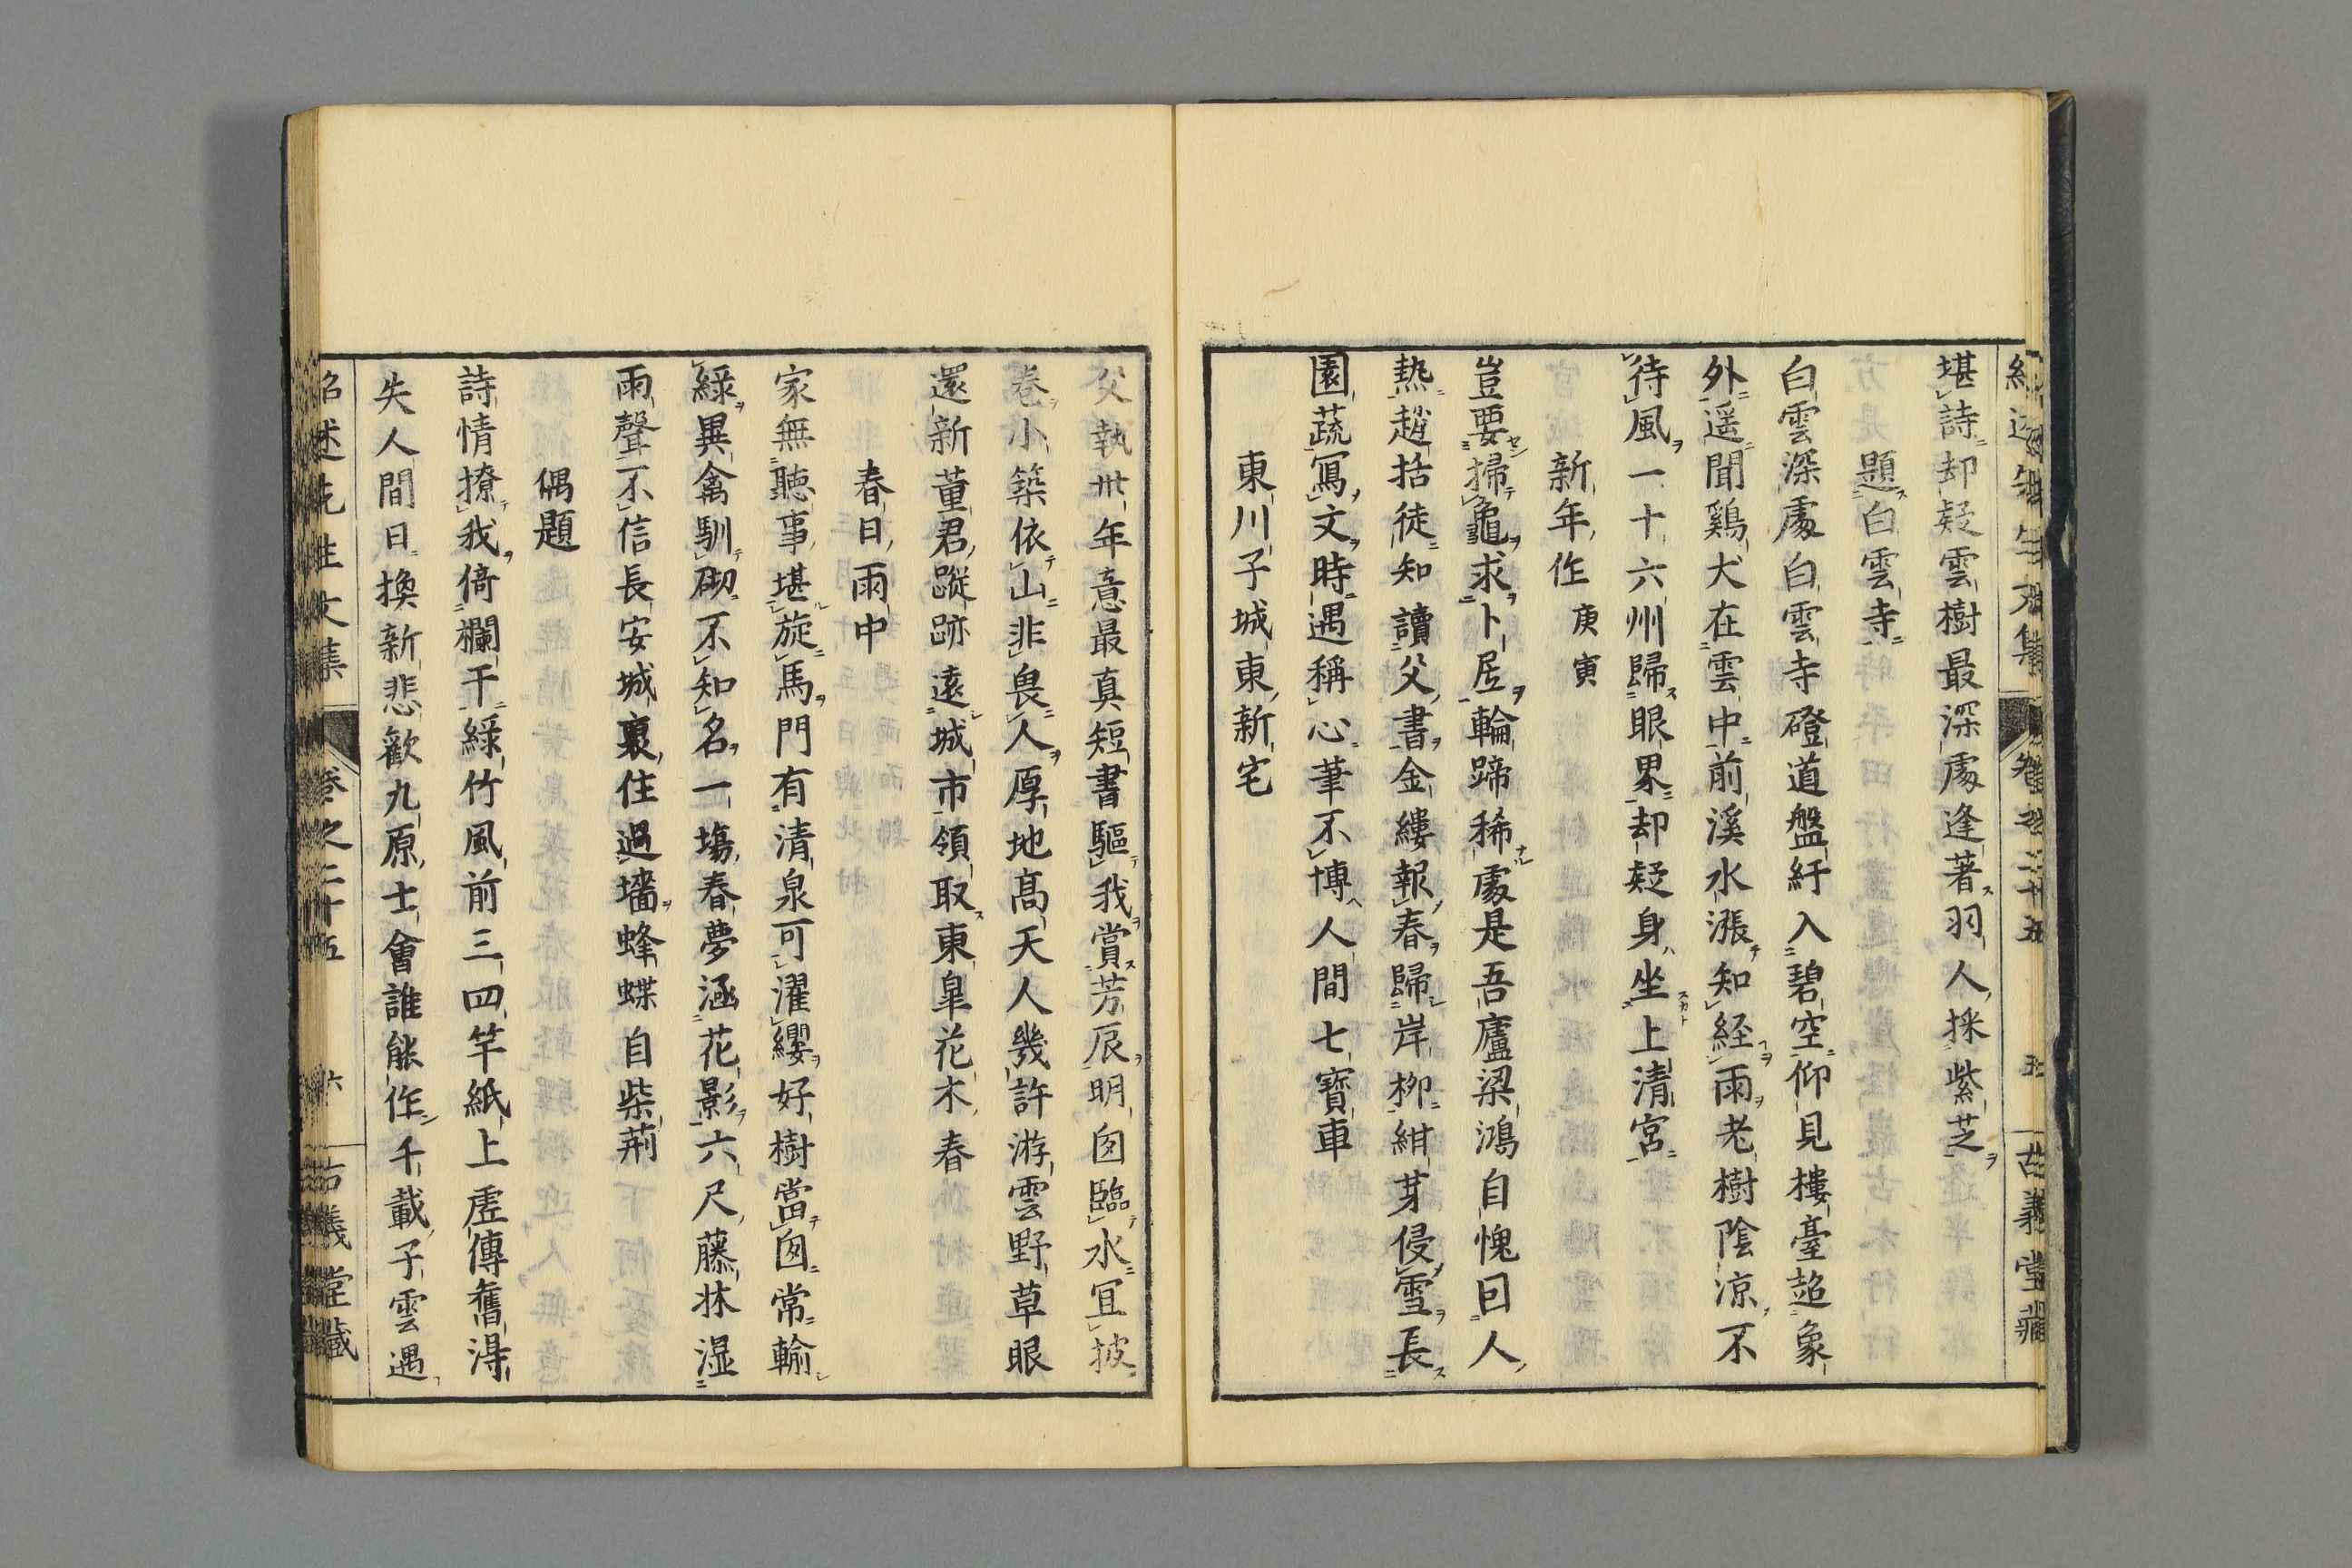 堪詩却疑雲樹最深處逢著羽人採紫芝
題白雲寺
白雲深處白雲寺磴道盤紆入碧空仰見樓臺超象
外遥聞鷄犬在雲中前溪水漲知経雨老樹陰凉不
待風一十六州歸眼界却疑身坐上清宮
新年作庚寅
豈要掃龜求卜居輪蹄稀處是吾廬梁鴻自愧因人
熱趙括徒知讀父書金縷報春歸岸柳紺芽侵雪長
園蔬寫文時遇稱心筆不博人間七寶車
東川子城東新宅
父執卅年意最真短書驅我賞芳辰明囱臨水宜披
卷小築依山非畏人厚地高天人幾許游雲野草眼
還新董君蹤跡遠城市領取東皐花木春
春日雨中
家無聽事堪旋馬門有清泉可濯纓好樹當囱常輸
綠異禽馴砌不知名一塲春夢涵花影六尺藤牀湿
雨聲不信長安城裏住過墻蜂蝶自柴荊
偶題
詩情撩我倚欄干綠竹風前三四竿紙上虛傳舊淂
失人間日換新悲歡九原士會誰能作千載子雲遇
紹述先生文集
卷之二十五
五
古義堂藏
紹述先生文集
卷之二十五
六
古義堂藏